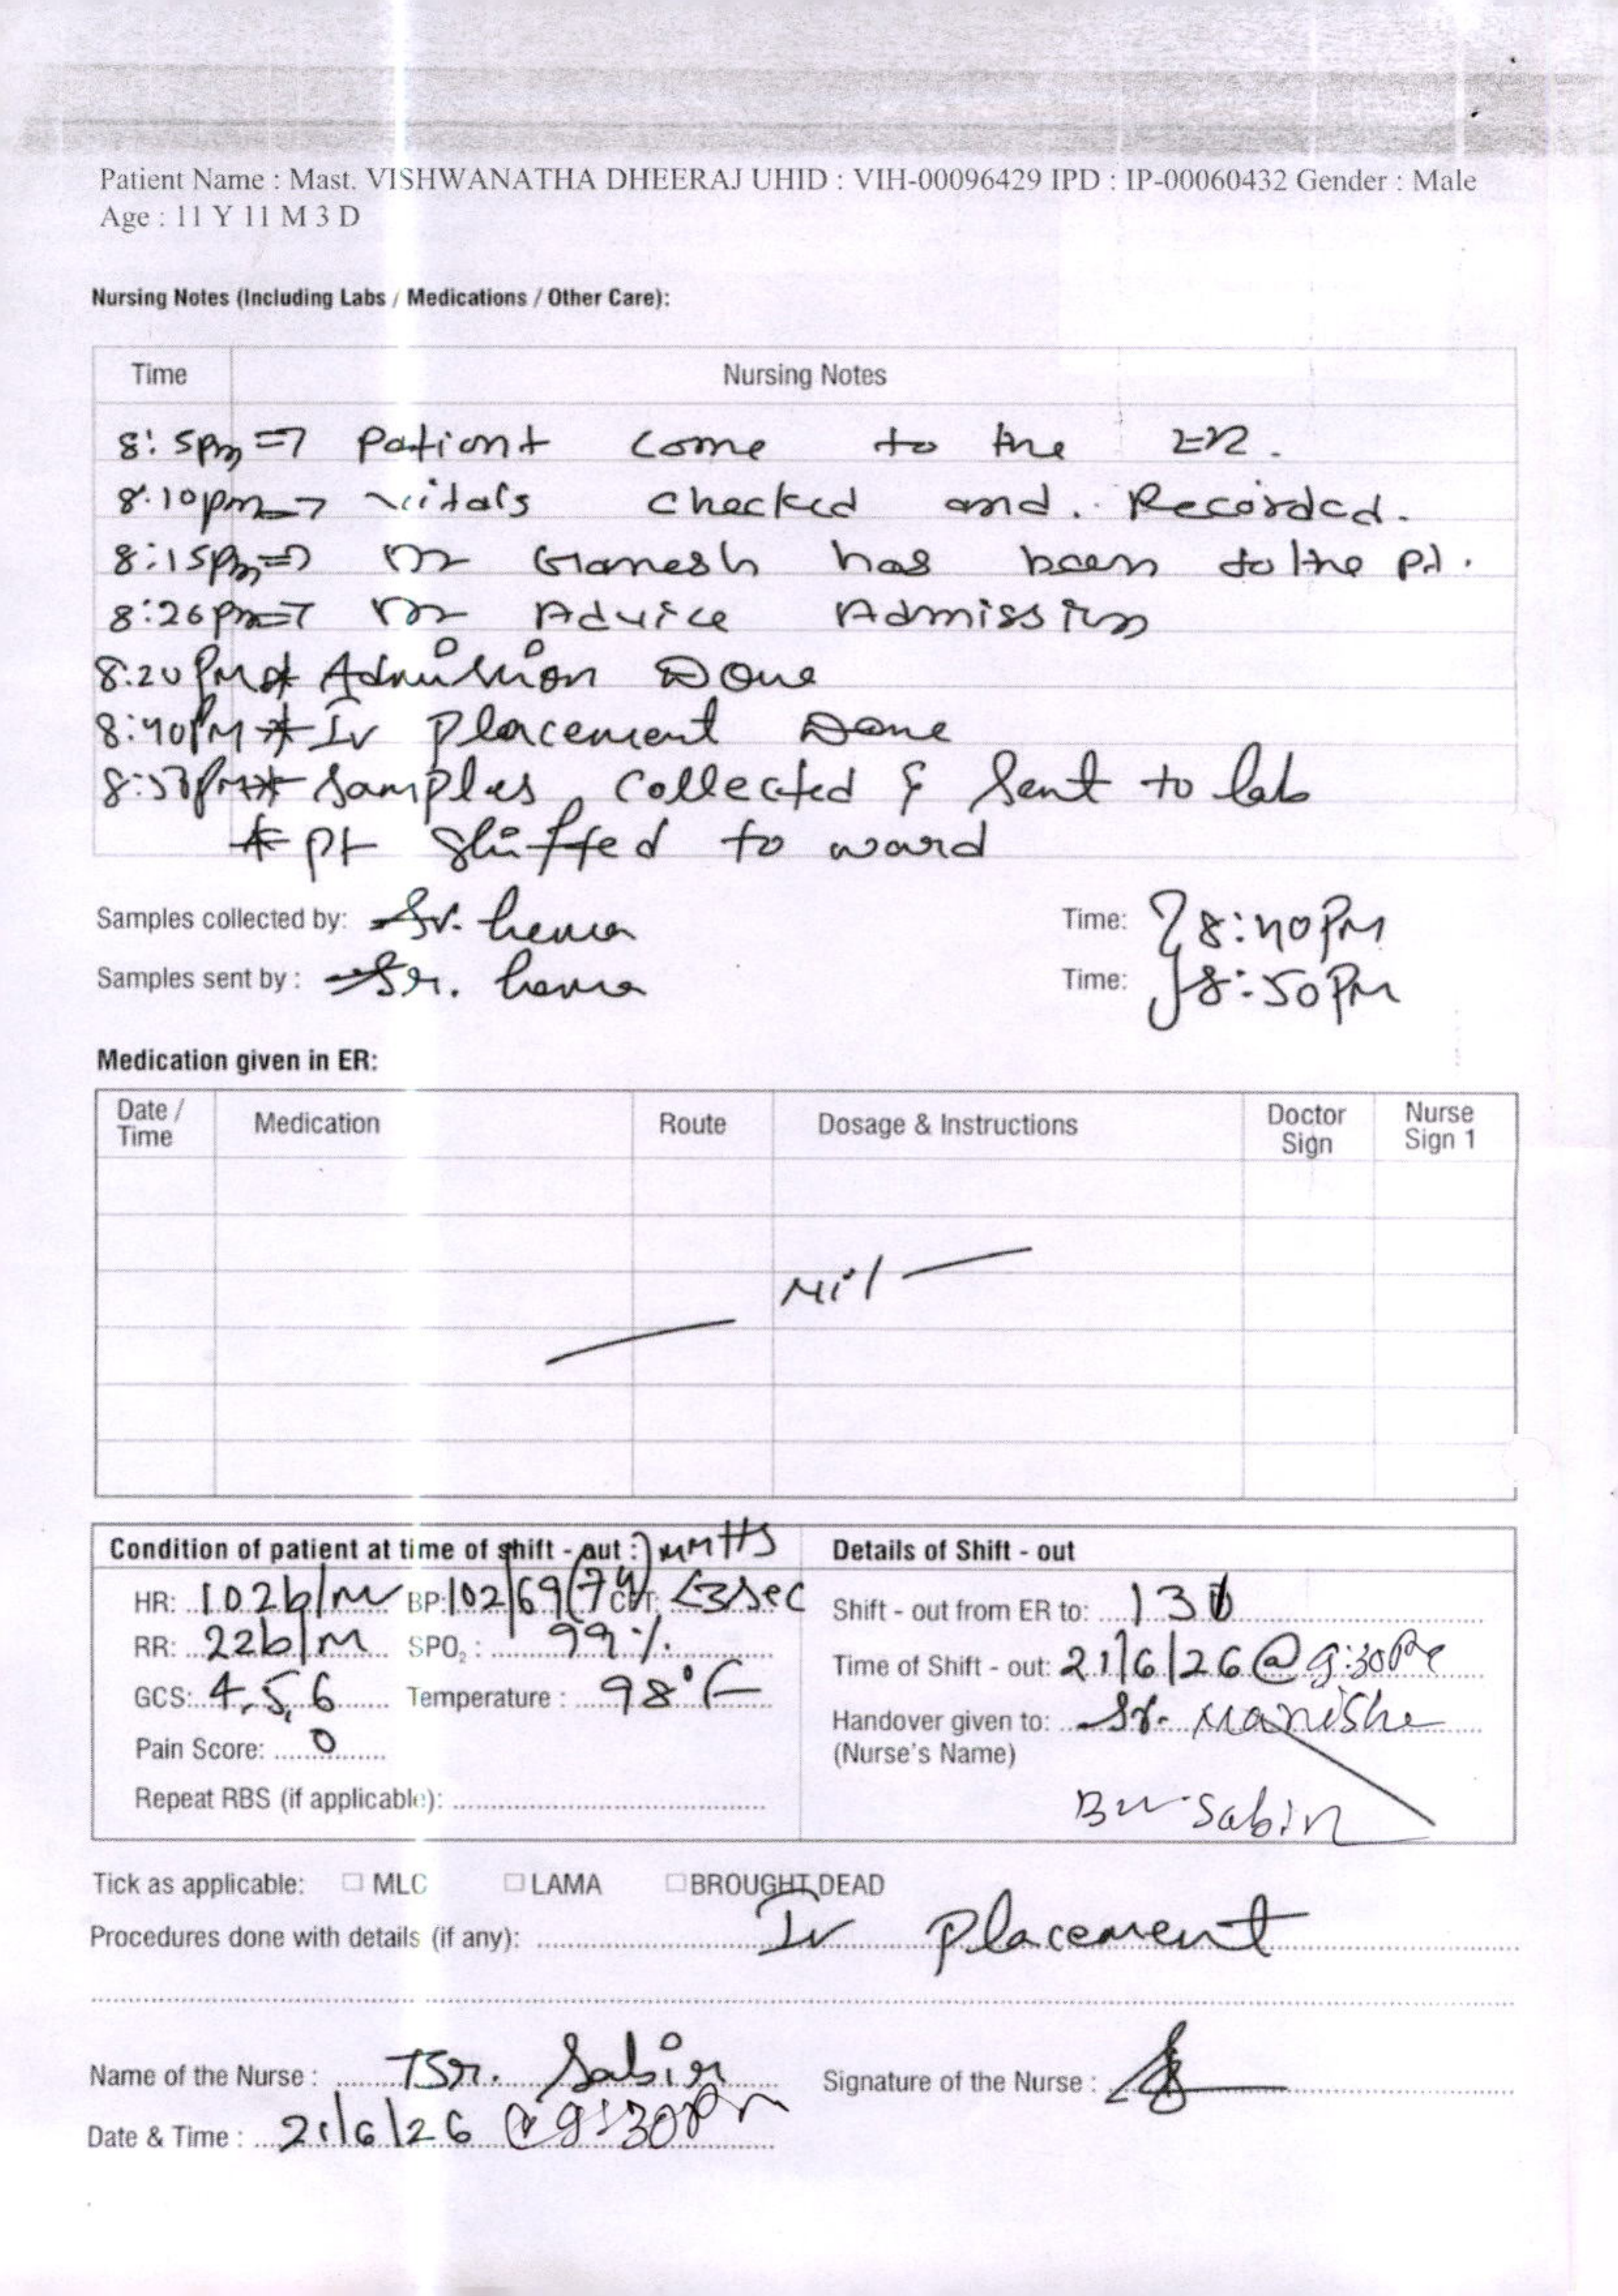 Patient Name : Mast. VISHWANATHA DHEERAJ UHID : VIH-00096429 IPD : IP-00060432 Gender : Male
Age : 11 Y 11 M 3 D
Nursing Notes (Including Labs / Medications / Other Care):
Time Nursing Notes
8:5pm => Patient come to the ER.
8.10pm => vitals checked and. Recorded.
8:15pm => Dr Ganesh has been to the pt.
8:20pm => Dr Advice Admission
8:20PM * Admission Done
8:40PM * Iv Placement Done
8:50PM * Samples collected & sent to lab
* pt shiffed to ward
Samples collected by: Sr. hema Time: 8:40PM
Samples sent by : Sr. hema Time: 8:50PM
Medication given in ER:
Date / Time Medication Route Dosage & Instructions Doctor Sign Nurse Sign 1
Nil
Condition of patient at time of shift - out : Details of Shift - out
HR: 102b/m BP: 102/69(74) CRT: <3sec Shift - out from ER to:
RR: 22b/M SPO2 : 99% Time of Shift - out: 21/6/26 @ 9:30PM
GCS: 4,5,6 Temperature : 98°F Handover given to: Sr. Manisha
Pain Score: 0 (Nurse's Name)
Repeat RBS (if applicable): Sabin
Tick as applicable: MLC LAMA BROUGHT DEAD
Procedures done with details (if any): Iv Placement
Name of the Nurse : Br. Sabin Signature of the Nurse :
Date & Time : 21/6/26 @ 9:30PM